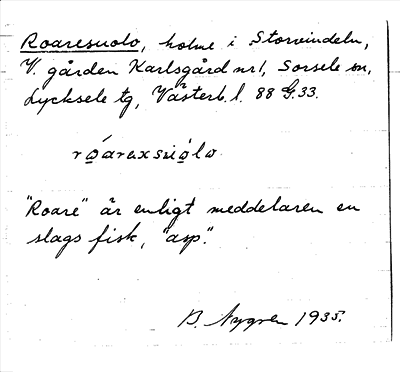 Roaresuolo, holme i Storvindeln,
V. gården Karlsgård nr 1, Sorsele sn,
Lycksele tg, Västerb. l. 88 G. 33.
róaraxsuólo
"Roare" är enligt meddelaren en
slags fisk, "asp".
B. Nygren 1935.